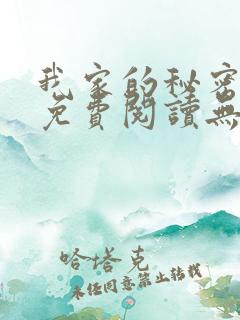 我家的秘密
免費閱讀無
哈塔克
未经同意禁止转载